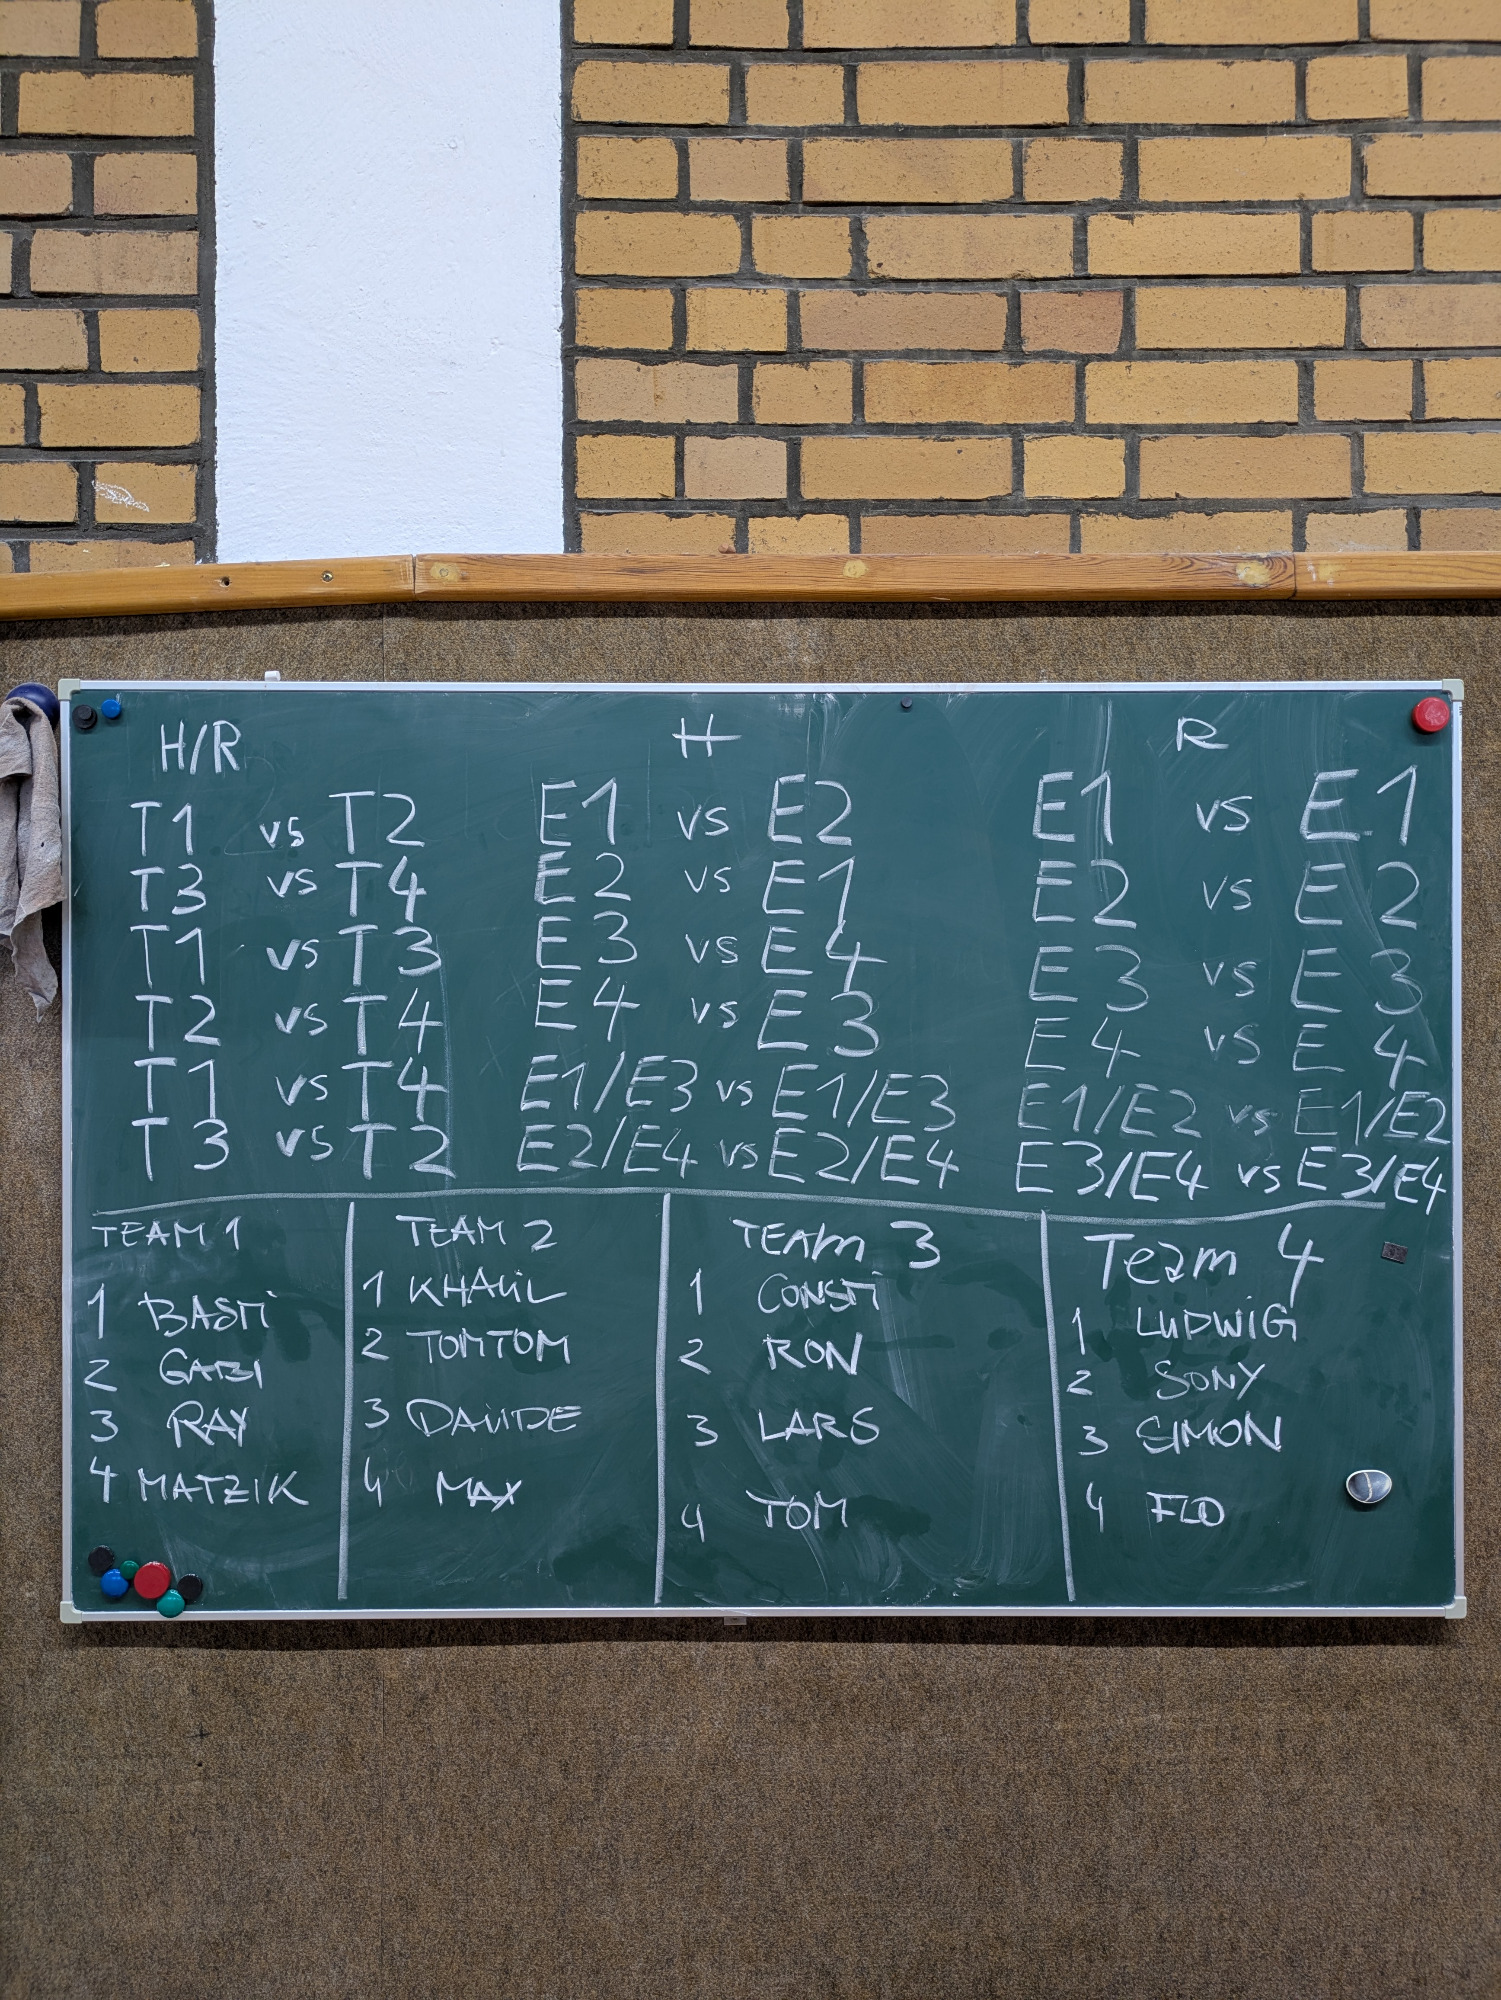 H/R H R
T1 vs T2 E1 vs E2 E1 vs E1
T3 vs T4 E2 vs E1 E2 vs E2
T1 vs T3 E3 vs E4 E3 vs E3
T2 vs T4 E4 vs E3 E4 vs E4
T1 vs T4 E1/E3 vs E1/E3 E1/E2 vs E1/E2
T3 vs T2 E2/E4 vs E2/E4 E3/E4 vs E3/E4
TEAM 1
1 BASTI
2 GABI
3 RAY
4 MATZIK
TEAM 2
1 KHALIL
2 TOMTOM
3 DAVIDE
4 MAX
TEAM 3
1 CONSTI
2 RON
3 LARS
4 TOM
Team 4
1 LUDWIG
2 SONY
3 SIMON
4 FLO